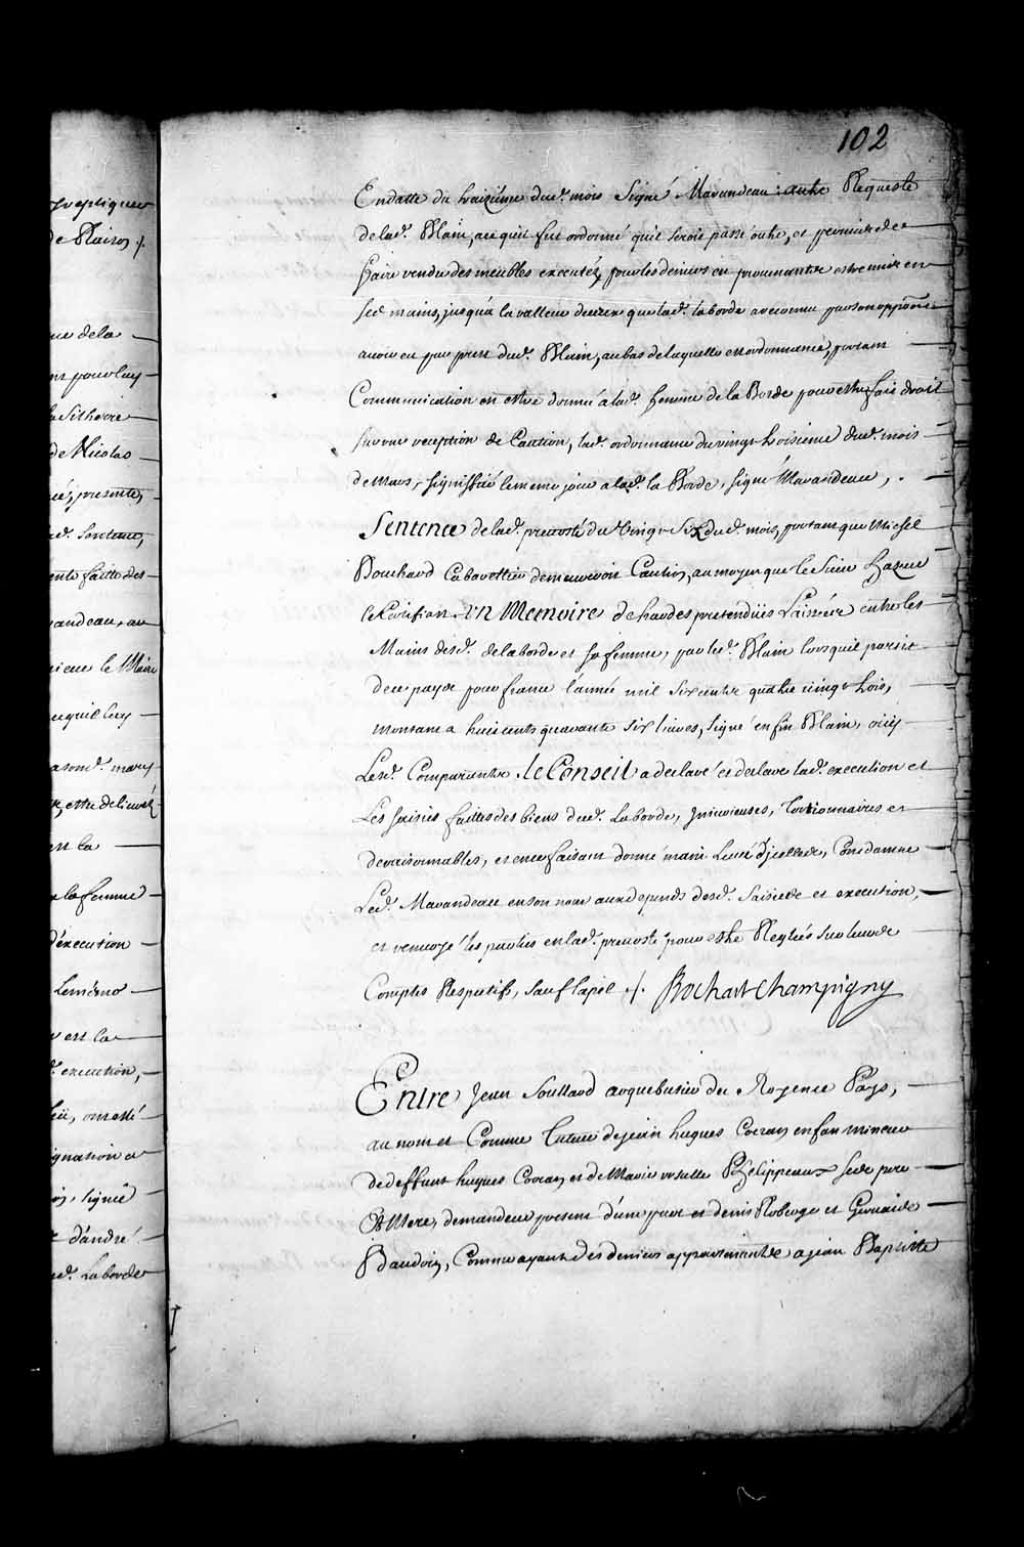 102
Endatte du traizième dud. mois Signé Marandeau autre Requeste
delad. Blain, ace quil fut ordonné quil seroit passé outre, et permis de
faire vendre des meubles executéz pour les deniers en provenants estre mis en
ses mains, jusqu'a la valleur deceux que lad. laborde a reconnu par son oppōn
avoir eu par prest dud. Blain, au bas delaquelle est ordonnance, portant
Communication en estre donnée alad. femme de la Borde pour estre fait droit
sur une reception de Caution, lad. ordonnance du vingt troisième dud. mois
de mars, signiffiée le mesme jour alad. la Borde, signé Marandeau,
Sentence delad. prevosté du Vingt Six dud. mois, portant que Michel
Bouchard Cabarettier demeureroit Caution, au moyen que le Sieur hazeur
le Certifian. Un Memoire de hardes pretendües Laissées entre les
Mains desd. delaborde et sa femme, par led. Blain lorsquil partit
de ce pays pour france l'année mil six cents quatre vingt trois,
montant a huit cents quarante six livres, signé en fin Blain, oüy
Lesd. Comparants. le Conseil a declaré et declare lad. execution et
Les saisies faittes des biens dud. Laborde, jnjurieuses, tortionnaires et
deraisonnables, et en ce faisant donne main Levée d'jcelles, Condamne
Led. Marandeau en son nom aux depends desd. Saisies et execution,
et renvoyé les parties en lad. prevosté pour estre Reglés sur leurs
Comptes Respectifs, sauf l'apel ./. Bochart Champigny
Entre Jean Soullard arquebusier du Roy en ce Pays,
au nom et Comme Tuteur de jean hugues Cocran enfant mineur
de deffunt hugues Cocran et de Marie Phelippeaux ses pere
Et Mere, demandeur present d'une part et denis Roberge et Gervais
Baudoin, Comme ayant des deniers appartenants a jean Baptiste
de Raison ./.
de Nicolas
d'execution
execution,
signé
d'andré
Laborde